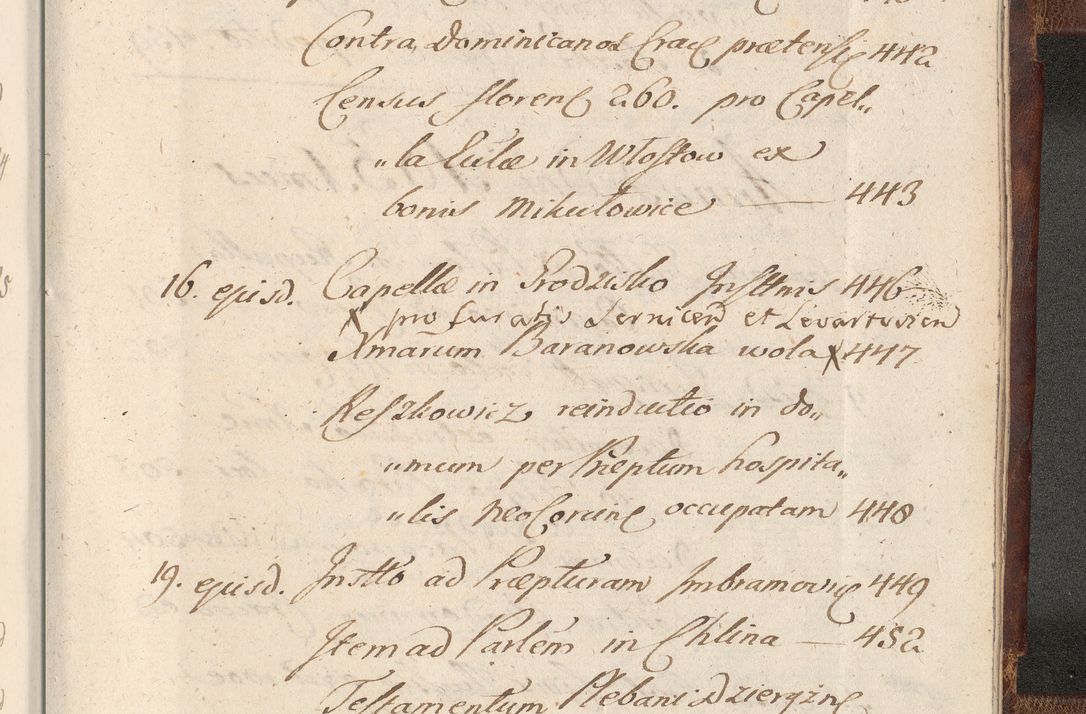 Contra Dominicanos Crac prætens 442
Census floren 260. pro Capel„
„la Eulæ in Włostow ex
bonis Mikułowice 443
16. ejusd. Capellæ in Grodzisko Insttnis 446
X pro furatis Sernicen et Levartovien
Xmarum Baranowska wola X 447
Keszkowicz reinductio in do„
„mum per Præptum hospita„
„lis NeoCorcine occupatam 448
19. ejusd. Instto ad Præpturam Imbramovic 449
Item ad Parlem in Chlina 452
Testamentum Plebani Dziergzin